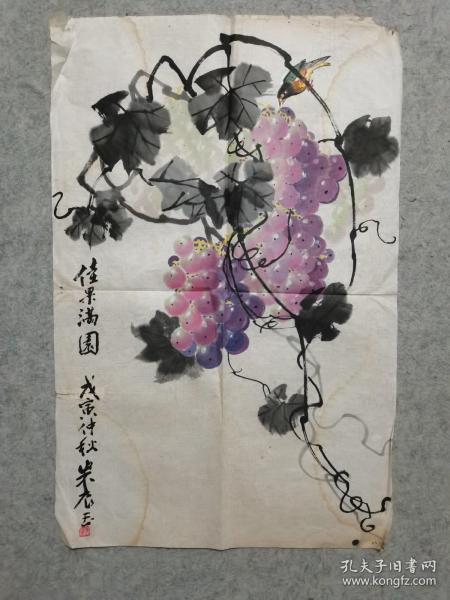 佳果满园
戊寅仲秋
孔夫子旧书网
www.kongfz.com